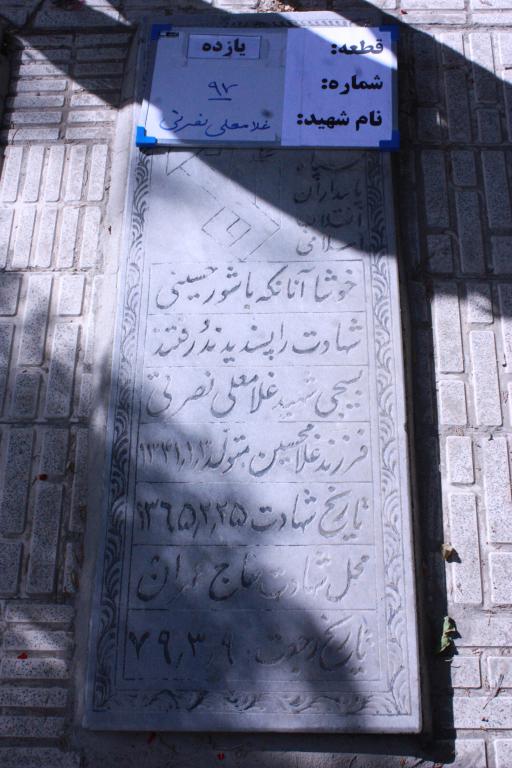 قطعه: یازده
شماره: ۹۷
نام شهید: غلامعلی نصرتی
سپاه
پاسداران
انقلاب
اسلامی
خوشا آنانکه با شور حسینی
شهادت را پسندیدند و رفتند
بسیجی شهید غلامعلی نصرتی
فرزند غلامحسین متولد ۱۳۳۱٫۱٫۳
تاریخ شهادت ۱۳۶۵٫۲٫۲۵
محل شهادت حاج عمران
تاریخ رجعت ۷۹٫۳٫۹